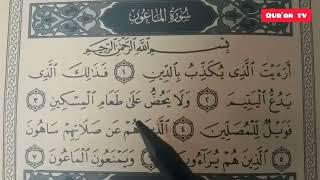 QUR'ON TV
سُورَةُ المَاعُونِ
بِسْمِ اللَّهِ الرَّحْمَٰنِ الرَّحِيمِ
أَرَءَيْتَ الَّذِي يُكَذِّبُ بِالدِّينِ ١ فَذَٰلِكَ الَّذِي
يَدُعُّ الْيَتِيمَ ٢ وَلَا يَحُضُّ عَلَىٰ طَعَامِ الْمِسْكِينِ ٣
فَوَيْلٌ لِّلْمُصَلِّينَ ٤ الَّذِينَ هُمْ عَن صَلَاتِهِمْ سَاهُونَ
٥ الَّذِينَ هُمْ يُرَاءُونَ وَيَمْنَعُونَ الْمَاعُونَ ٧